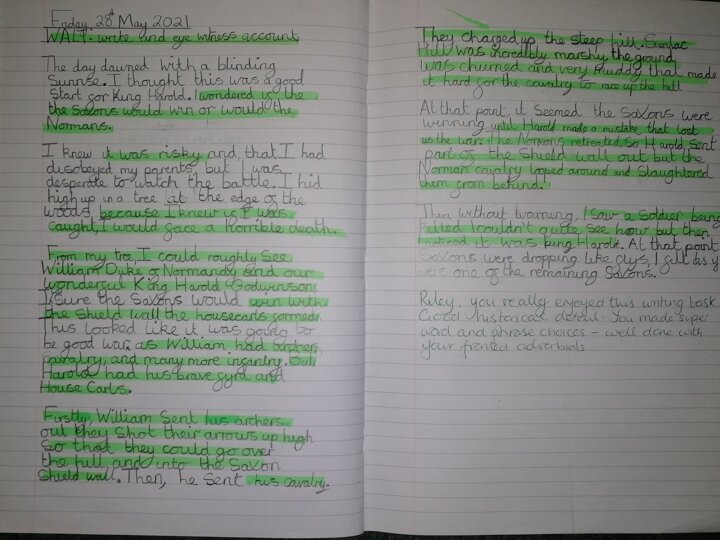 Friday 28th May 2021
WALT: write and eye witness account
The day dawned with a blinding
Sunrise. I thought this was a good
start for King Harold. I wondered if the
the Saxons would win or would the
Normans.
I knew it was risky and, that I had
disobeyed my parents, but I was
desperate to watch the battle. I hid
high up in a tree at the edge of the
woods because I knew if I was
caught, I would face a horrible death.
From my tree I could roughly see
William Duke of Normandy and our
wonderful King Harold Godwinson
I sure the Saxons would win with
the shield wall the housecarls formed.
This looked like it was going to
be good war, as William had archers,
cavalry, and many more infantry. But
Harold had his brave fyrd and
House Carls.
Firstly, William Sent his archers
out they shot their arrows up high
So that they could go over
the hill and into the Saxon
Shield wall. Then, he sent his cavalry.
They charged up the steep hill. Senlac
Hill was incredibly marshy, the ground
was churned and very muddy that made
it hard for the cavalry to race up the hill
At that point, it seemed the Saxons were
winning until Harold made a mistake, that lost
us the war. The Normans retreated, So Harold sent
part of the shield wall out but the
Norman cavalry looped around and slaughtered
them from behind.
Then, without warning, I saw a Soldier being
killed I couldn't quite see how but then
I noticed it was King Harold. At that point
Saxons were dropping like flys, I felt as if
were one of the remaining Saxons.
Riley, you really enjoyed this writing task.
Good historical detail. You made super
word and phrase choices – well done with
your fronted adverbials.